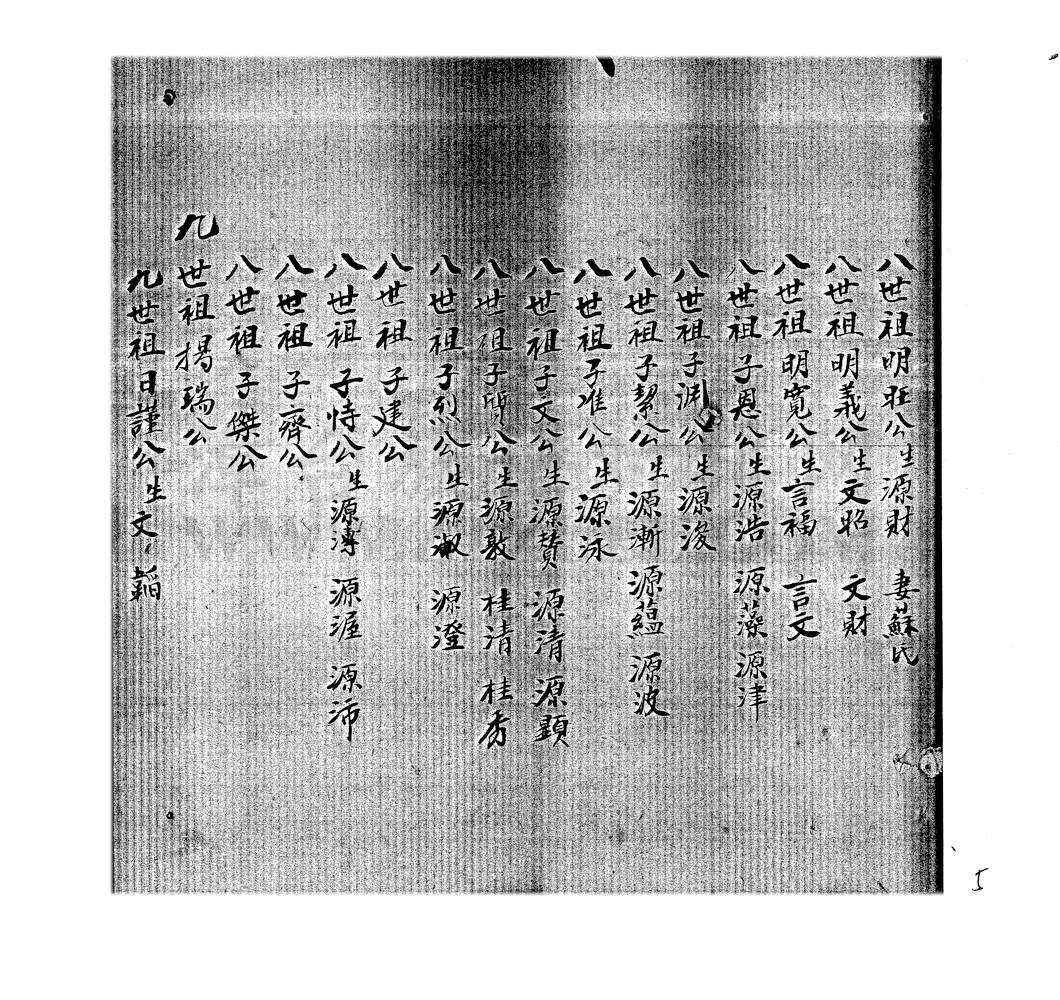 八世祖明旺公生源財　妻蘇氏
八世祖明義公生文昭　文財
八世祖明寬公生言福　言文
八世祖子恩公生源浩　源藻　源津
八世祖子渊公生源浚
八世祖子絜公生源漸　源蕴　源波
八世祖子准公生源泳
八世祖子文公生源赞　源清　源顕
八世祖子質公生源敦　桂清　桂秀
八世祖子烈公生源淑　源澄
八世祖子建公
八世祖子恃公生源溥　源渥　源沛
八世祖子齊公
八世祖子傑公
九世祖揚瑞公
九世祖日謹公生文韜
5